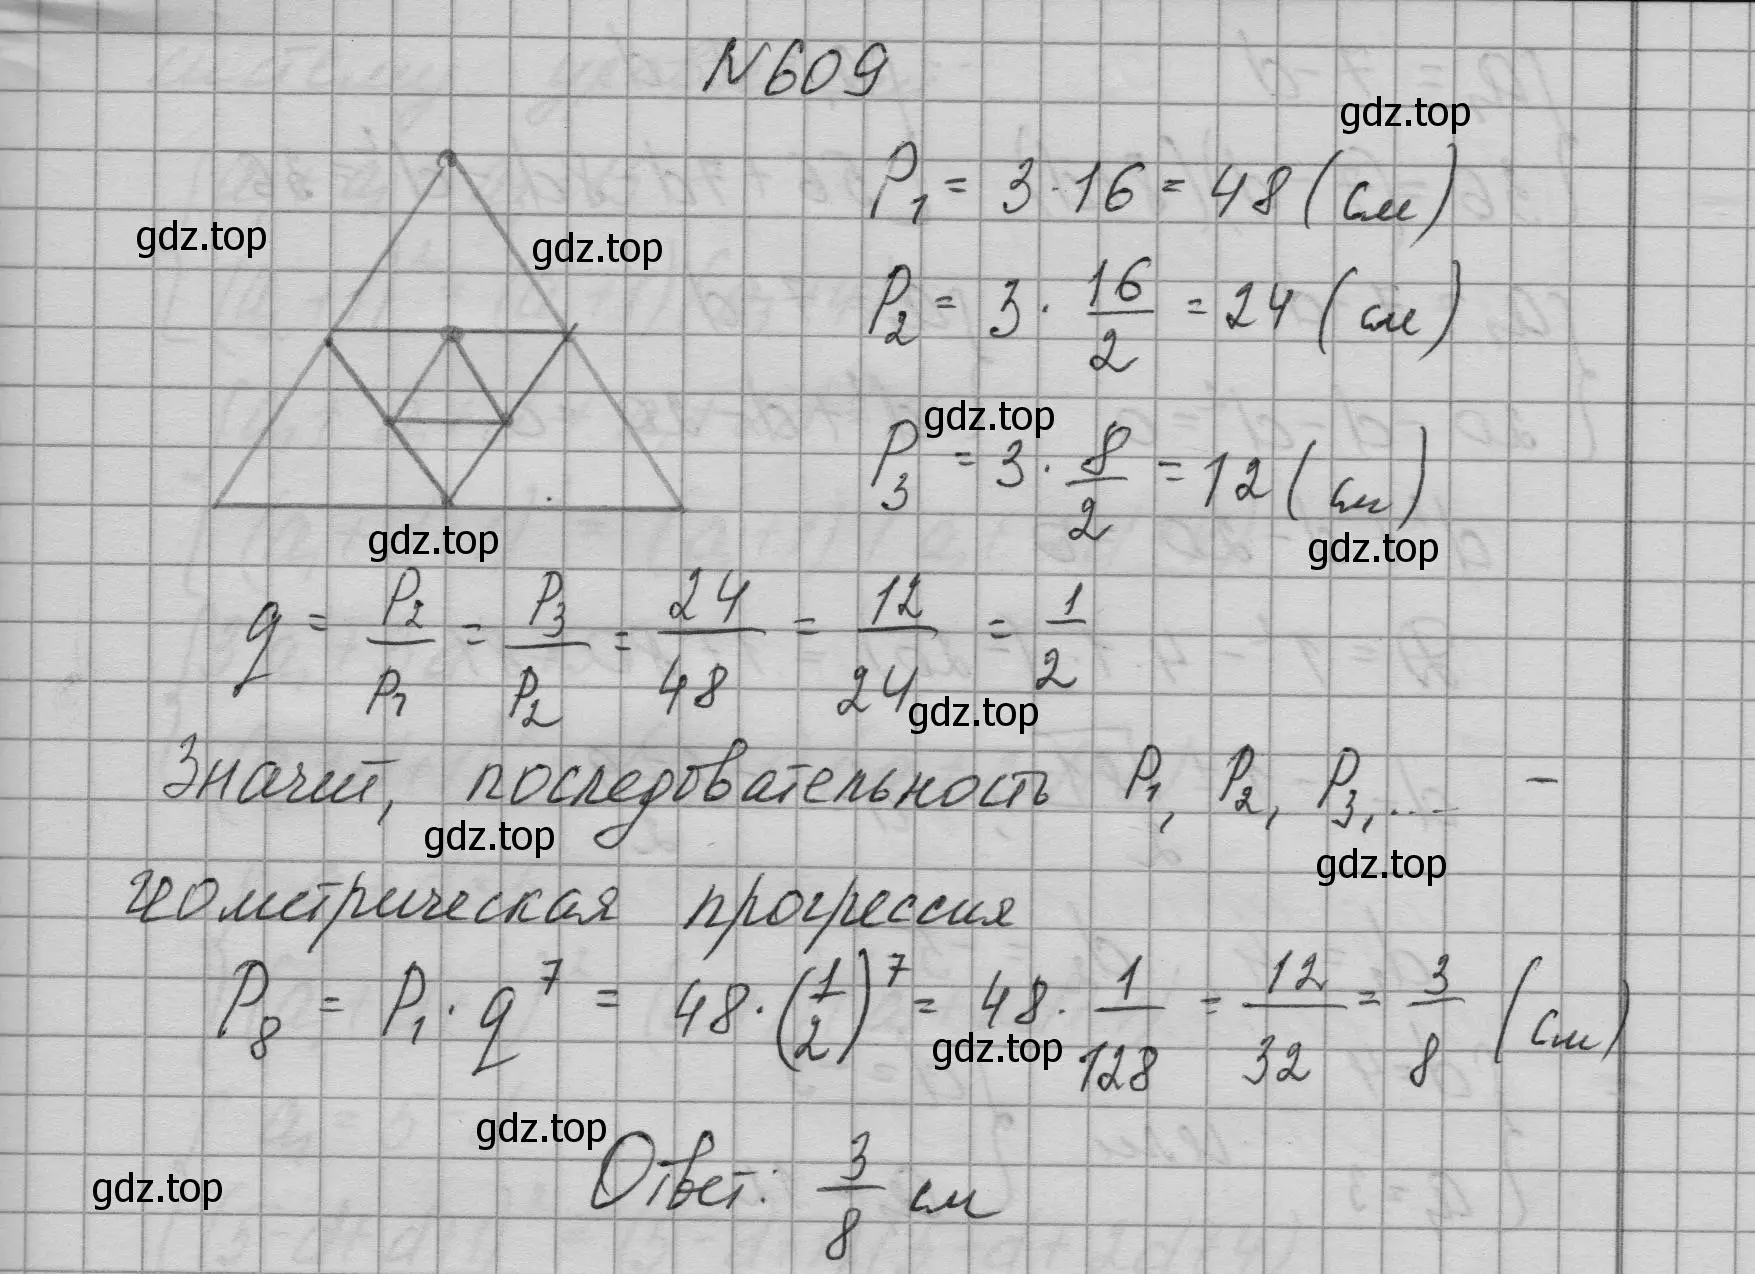 N609
gdz.top
P₁ = 3·16 = 48 (см)
gdz.top
gdz.top
P₂ = 3 · 16/2 = 24 (см)
gdz.top
P₃ = 3 · 8/2 = 12 (см)
gdz.top
gdz.top
q = P₂/P₁ = P₃/P₂ = 24/48 = 12/24 = 1/2
gdz.top
Значит, последовательность P₁, P₂, P₃, ... –
gdz.top
gdz.top
геометрическая прогрессия
P₈ = P₁ · q⁷ = 48 · (1/2)⁷ = 48 · 1/128 = 12/32 = 3/8 (см)
gdz.top
gdz.top
Ответ: 3/8 см
gdz.top